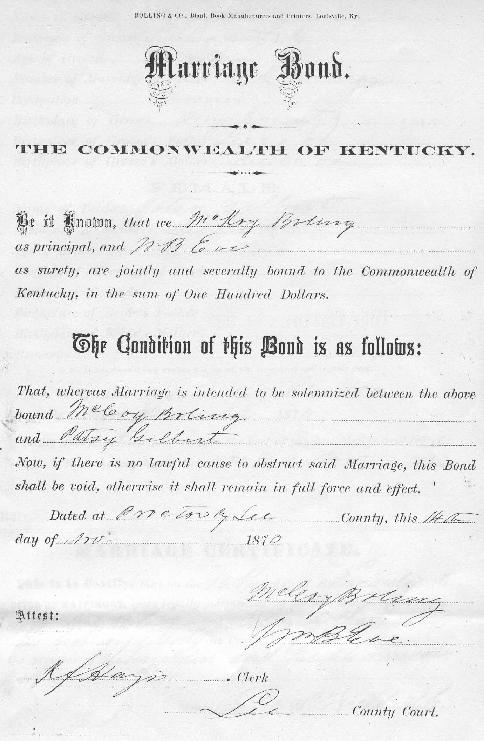 BOLLING & CO., Blank Book Manufacturers and Printers, Louisville, Ky.
Marriage Bond.
THE COMMONWEALTH OF KENTUCKY.
Be it Known, that we McKoy Boling
as principal, and
as surety, are jointly and severally bound to the Commonwealth of
Kentucky, in the sum of One Hundred Dollars.
The Condition of this Bond is as follows:
That, whereas Marriage is intended to be solemnized between the above
bound McCoy Boling
and Patsy Gilbert
Now, if there is no lawful cause to obstruct said Marriage, this Bond
shall be void, otherwise it shall remain in full force and effect.
Dated at Proctor Ky Lee County, this 14th
day of Nov 1870
McCoy Boling
Attest:
Clerk
Lee County Court.